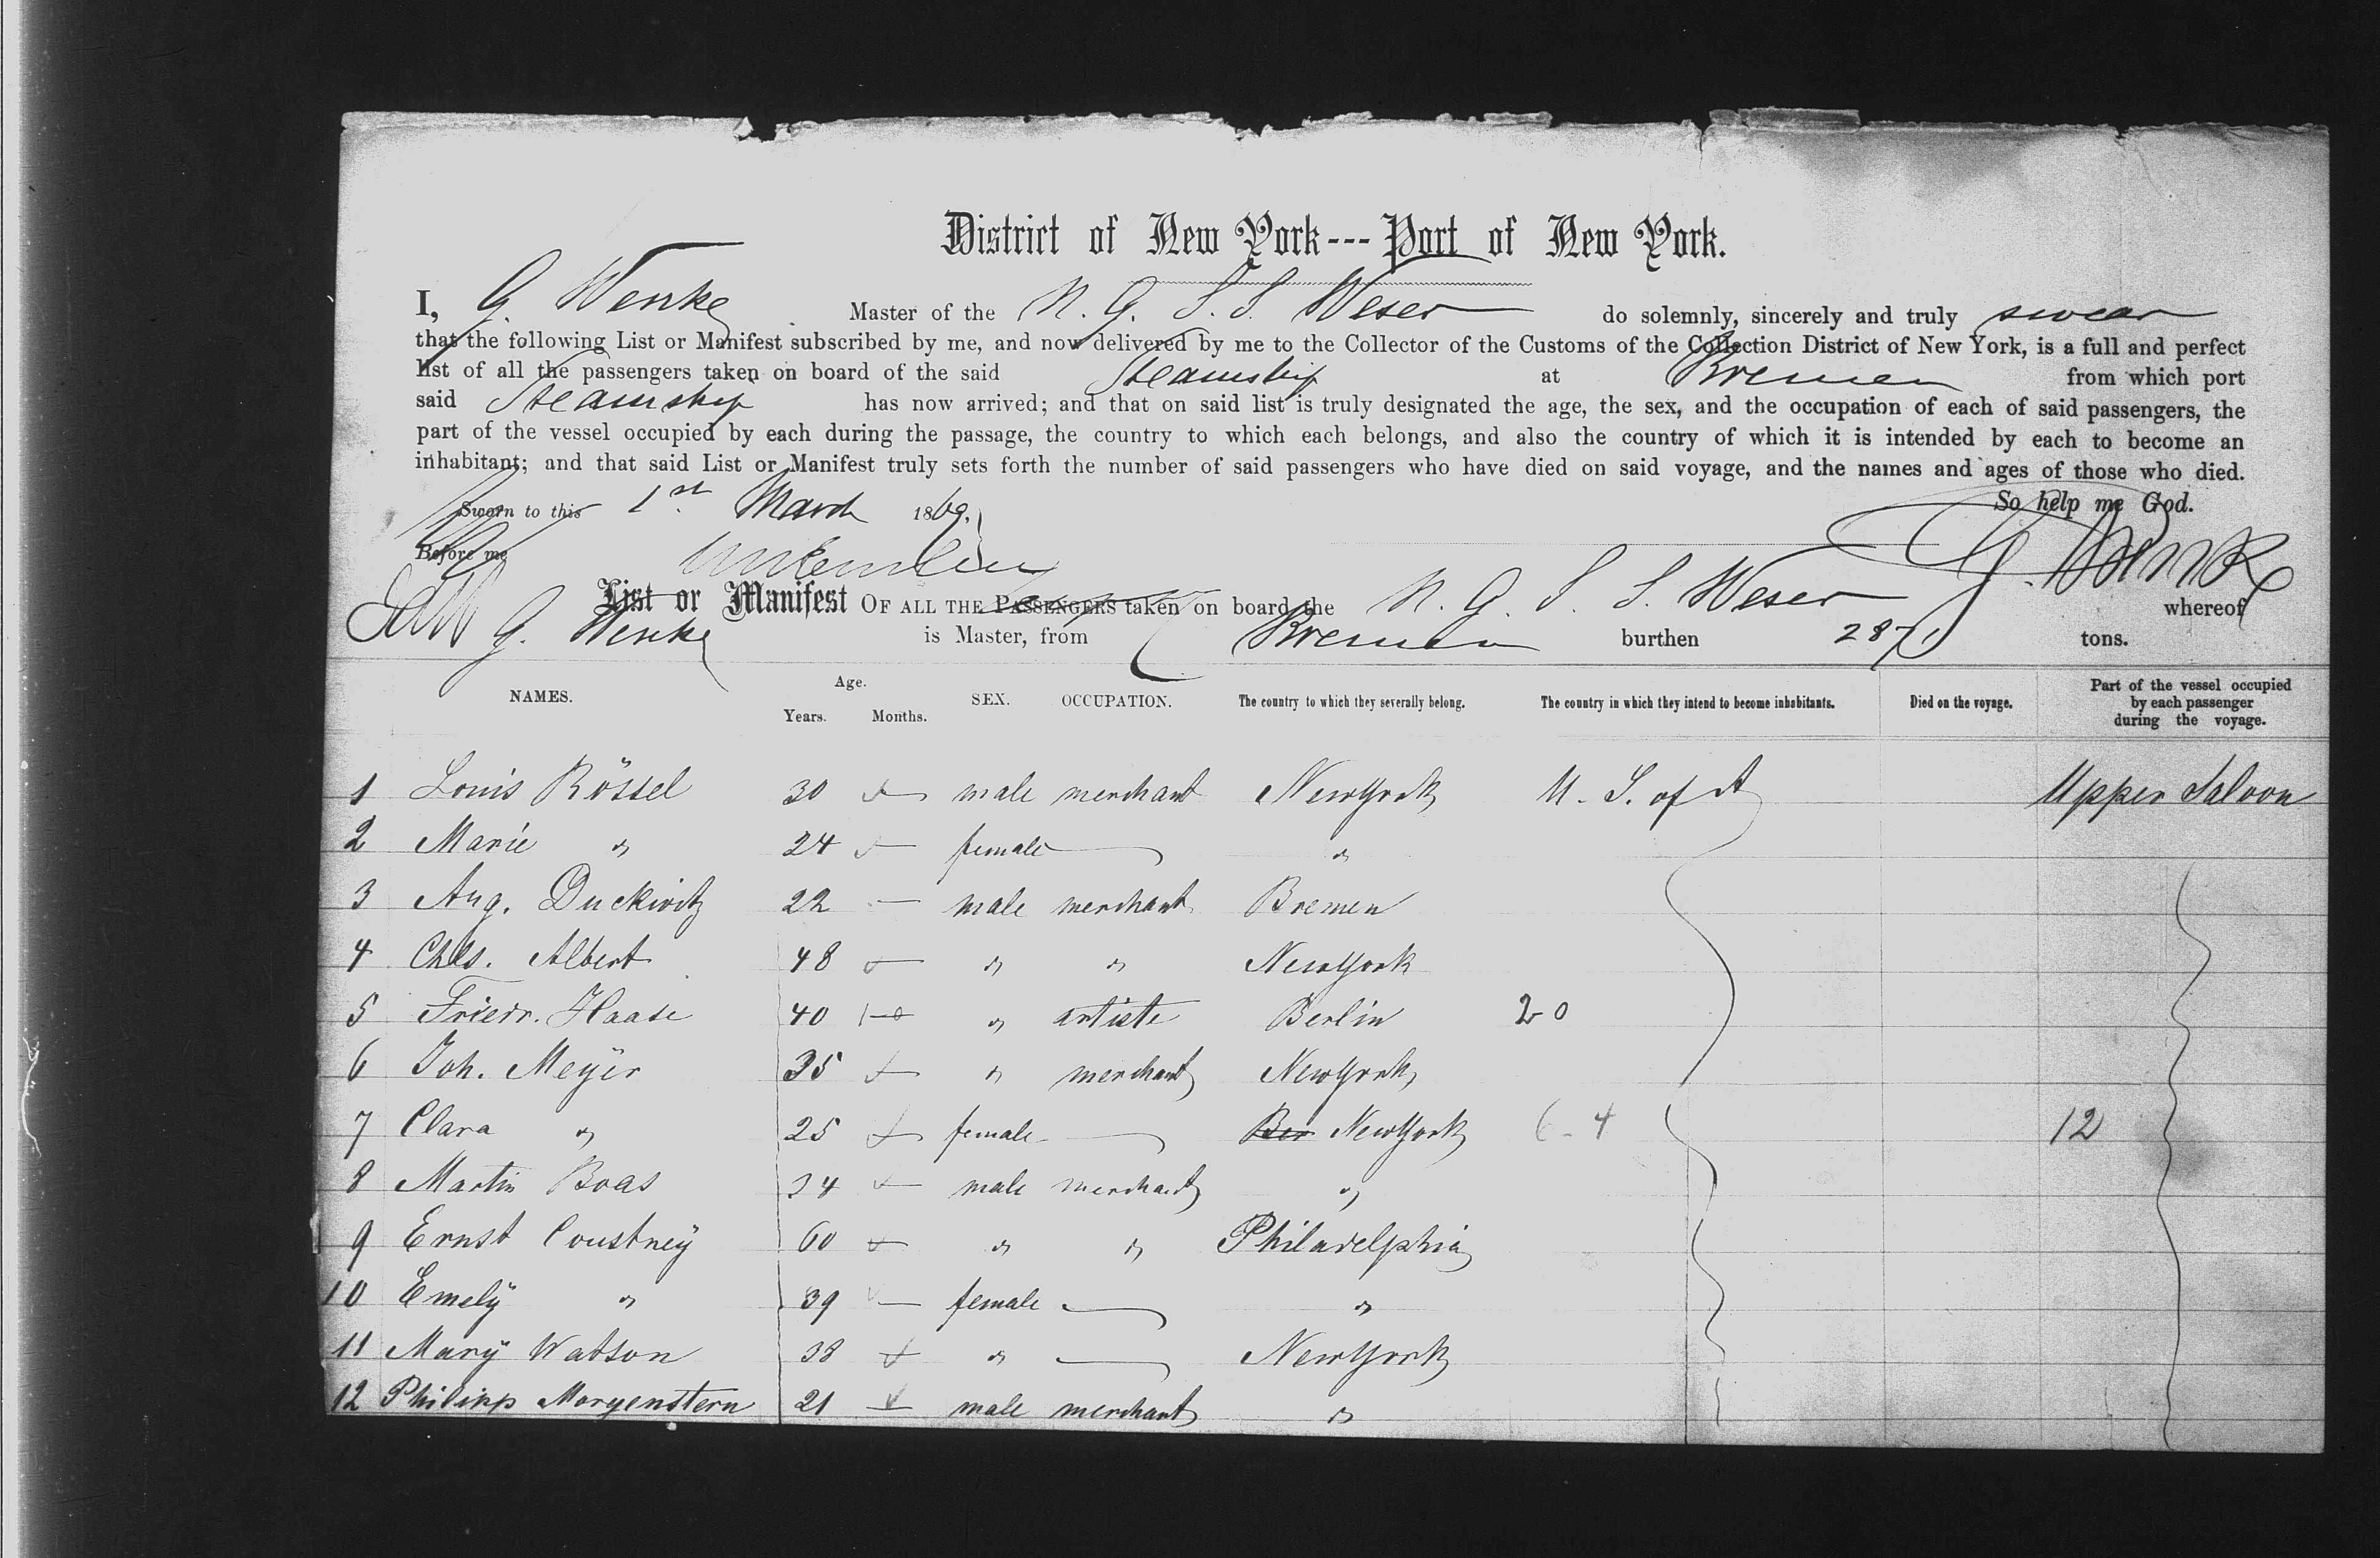 District of New York --- Port of New York.
I, G. Wenke Master of the N. G. S. S. Weser do solemnly, sincerely and truly swear
that the following List or Manifest subscribed by me, and now delivered by me to the Collector of the Customs of the Collection District of New York, is a full and perfect
list of all the passengers taken on board of the said Steamship at Bremen from which port
said Steamship has now arrived; and that on said list is truly designated the age, the sex, and the occupation of each of said passengers, the
part of the vessel occupied by each during the passage, the country to which each belongs, and also the country of which it is intended by each to become an
inhabitant; and that said List or Manifest truly sets forth the number of said passengers who have died on said voyage, and the names and ages of those who died.
So help me God.
Sworn to this 1st March 1869.
Before me G. Wenke
List or Manifest OF ALL THE PASSENGERS taken on board the N. G. S. S. Weser whereof
G. Wenke is Master, from Bremen burthen 2871 tons.
NAMES. Age. Years. Months. SEX. OCCUPATION. The country to which they severally belong. The country in which they intend to become inhabitants. Died on the voyage. Part of the vessel occupied by each passenger during the voyage.
1 Louis Rössel 30 male merchant NewYork U. S. of A Upper Saloon
2 Marie " 24 female "
3 Aug. Duckwitz 22 male merchant Bremen
4 Chls. Albert 48 " " NewYork
5 Friedr. Haase 40 " artiste Berlin 20
6 Joh. Meÿer 35 " merchant NewYork
7 Clara " 25 female Ber NewYork 6 - 4 12
8 Martin Boas 34 male merchant "
9 Ernst Coustneÿ 60 " " Philadelphia
10 Emelÿ " 39 female "
11 Marÿ Watson 38 " NewYork
12 Philipp Morgenstern 21 male merchant "